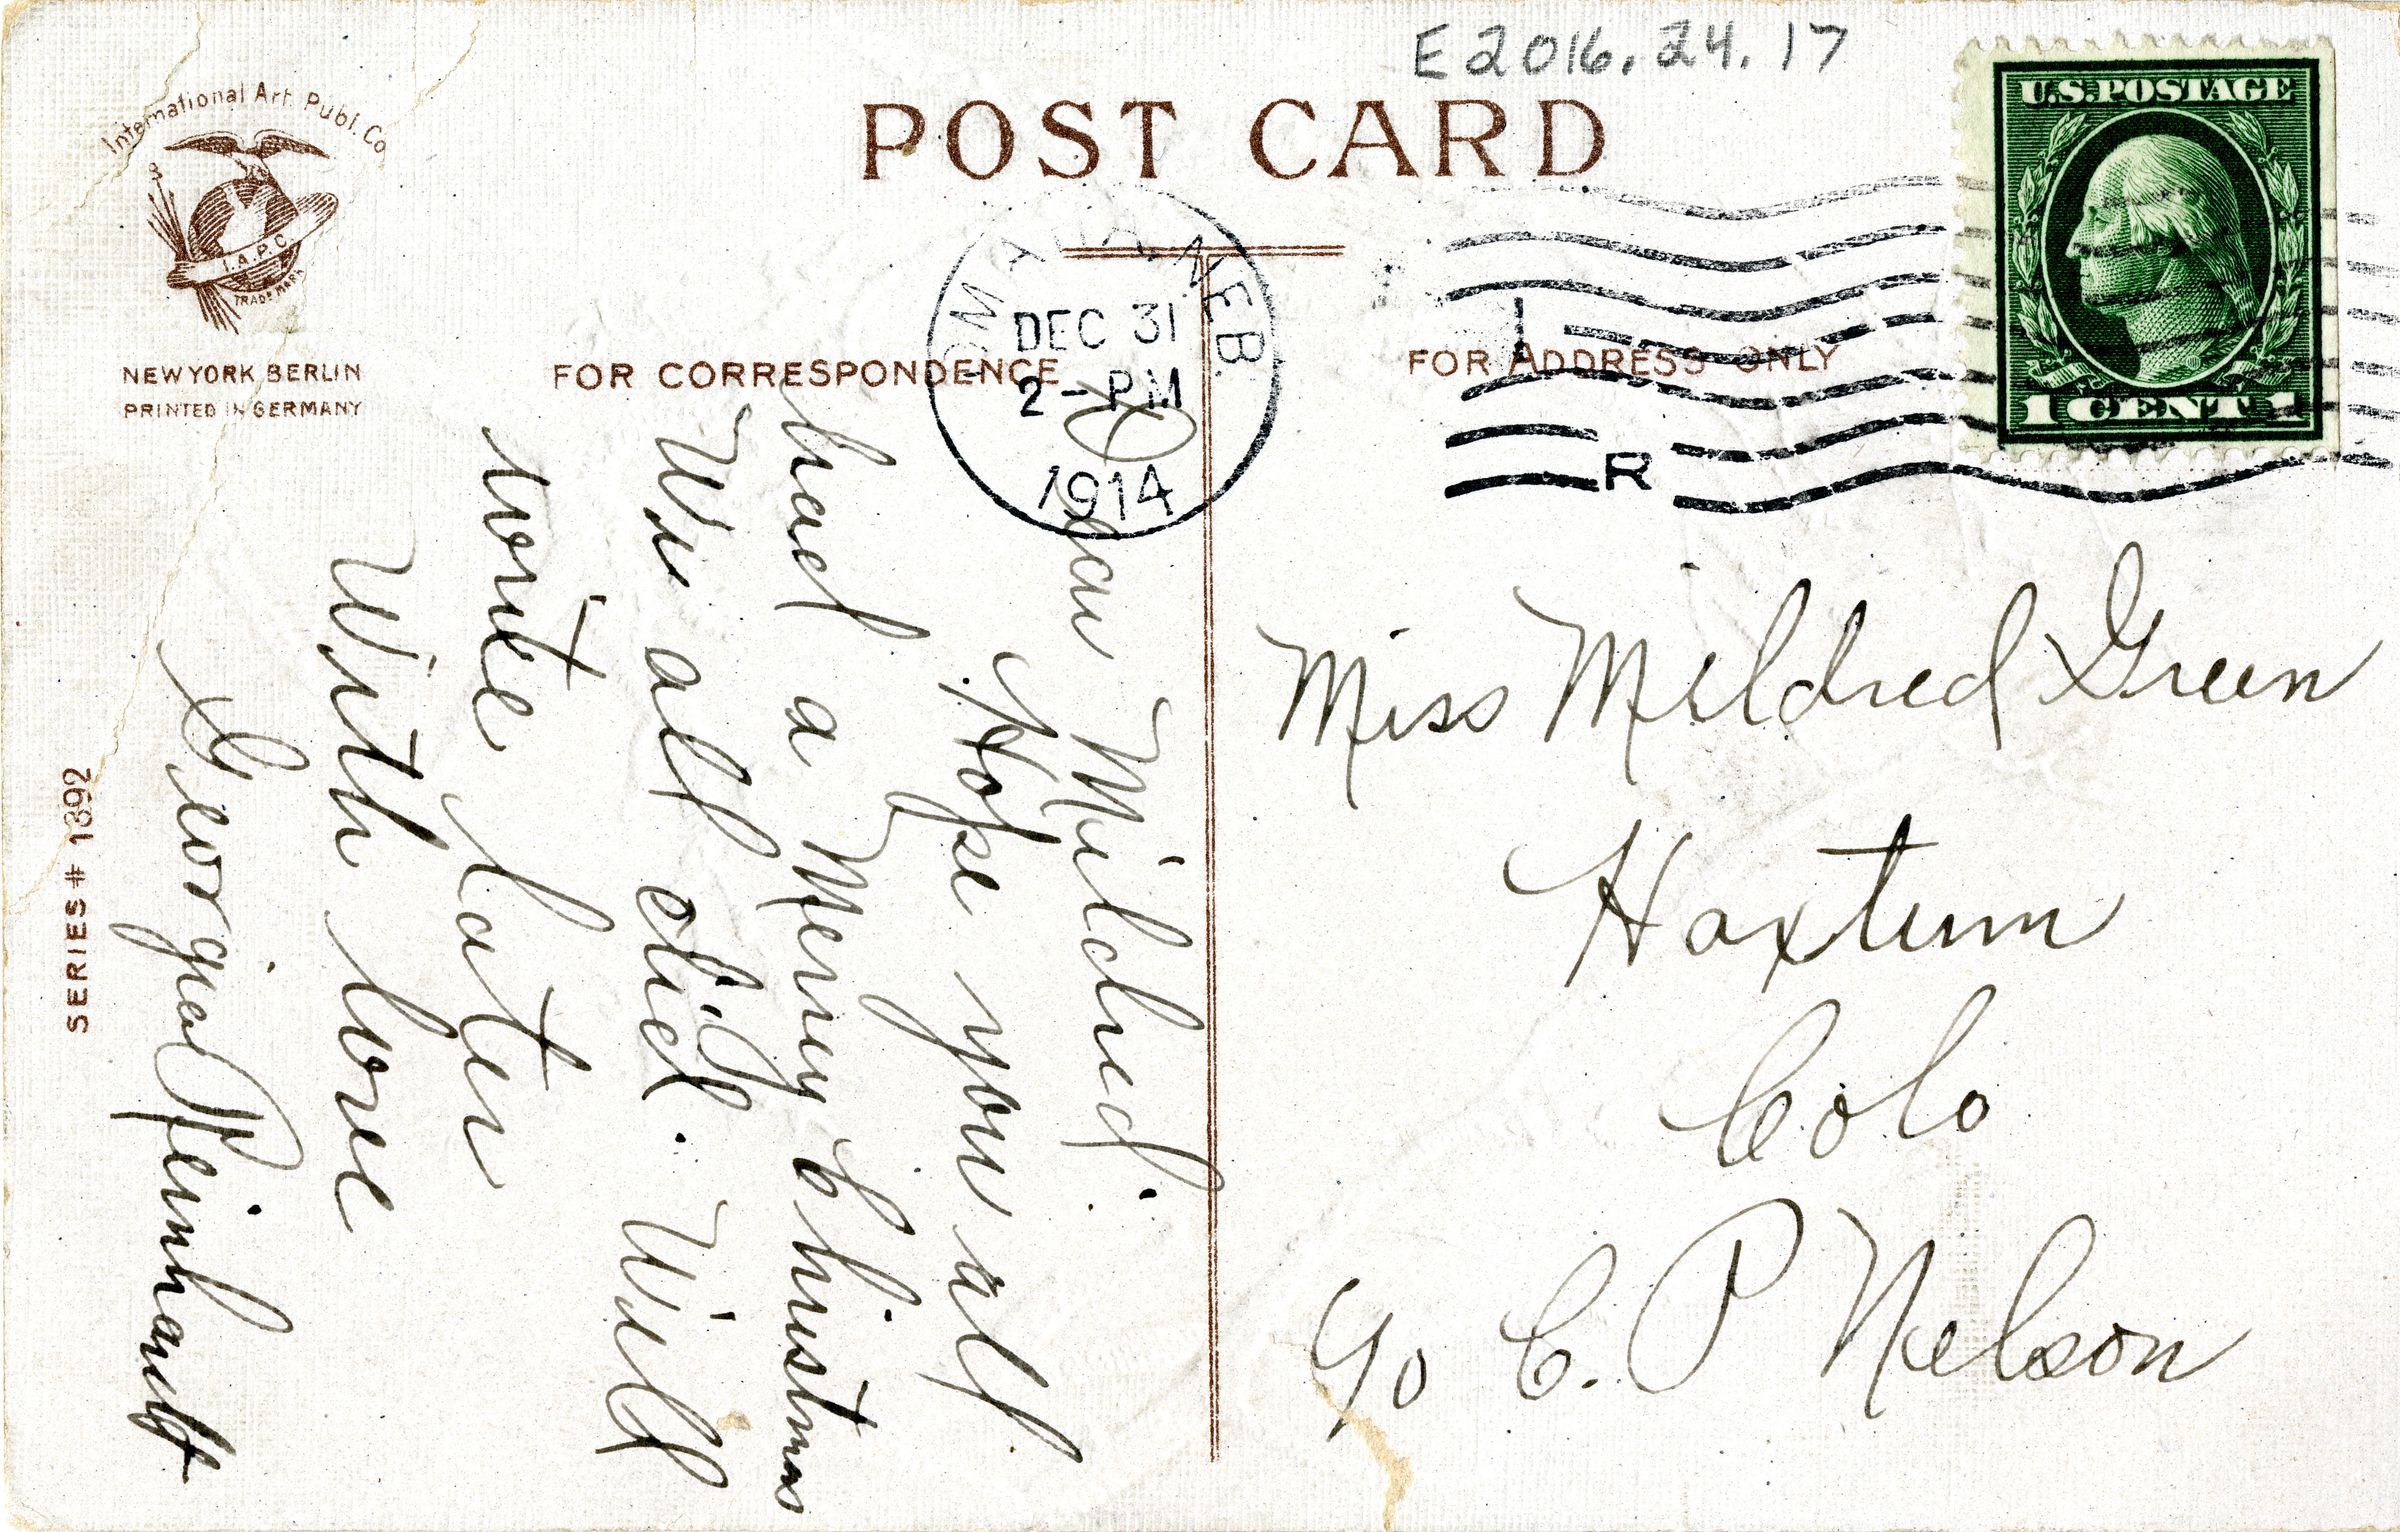 E 2016.24.17
International Art Publ. Co
I.A.P.C.
TRADE MARK
NEW YORK BERLIN
PRINTED IN GERMANY
POST CARD
U.S. POSTAGE
1 CENT 1
OMAHA, NEB.
DEC 31
2 - PM
1914
R
FOR CORRESPONDENCE
FOR ADDRESS ONLY
Dear Mildred.
Hope you all
had a Merry Christmas
We all did. Will
write later
With love
Georgia Reinhardt
SERIES # 1892
Miss Mildred Green
Haxtum
Colo
℅ C. P Nelson